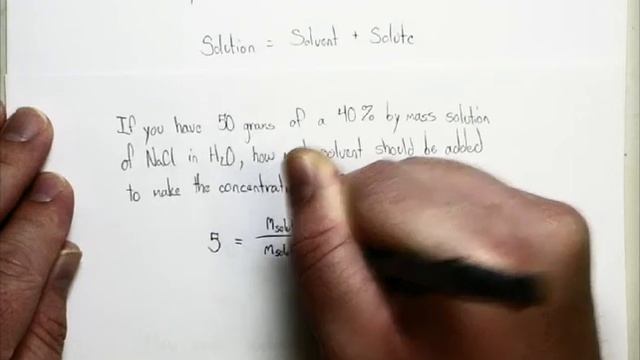 Solution = Solvent + Solute
If you have 50 grams of a 40% by mass solution
of NaCl in H₂O, how solvent should be added
to make the
5 =